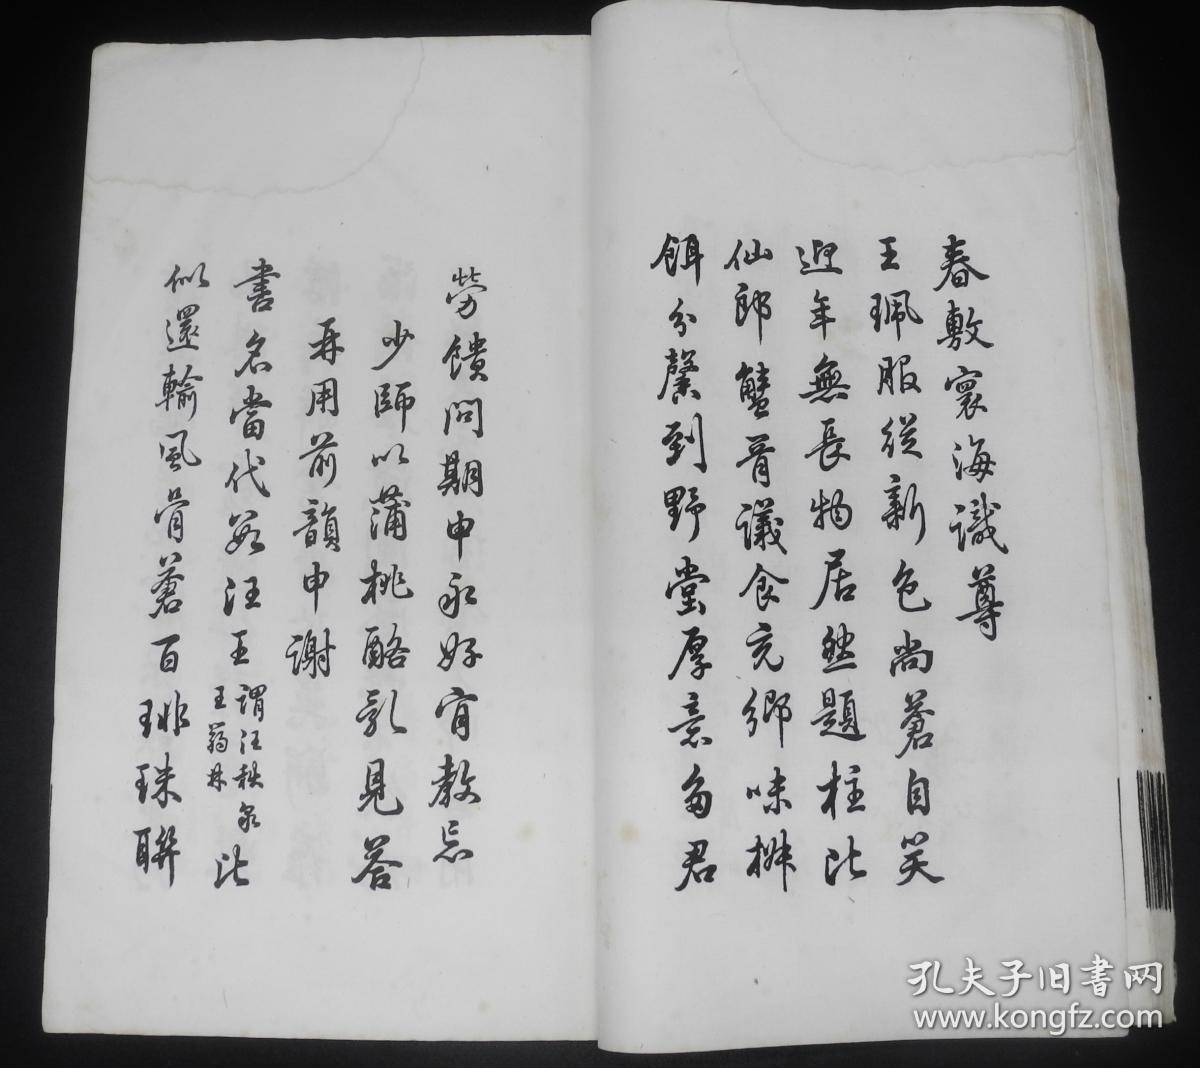 春敷寰海識尊
王珮服從新色尚蒼自笑
迎年無長物居然題柱比
仙郎蟹胥議食充鄉味椒
餌分馨到野堂厚意勞君
勞饋問期申永好宵教忘
少師以蒲桃酪乳見答
再用前韻申謝
書名當代數汪王謂汪秋泉王蒻林比
似還輸風骨蒼百琲珠聯
孔夫子旧書网
www.kongfz.com